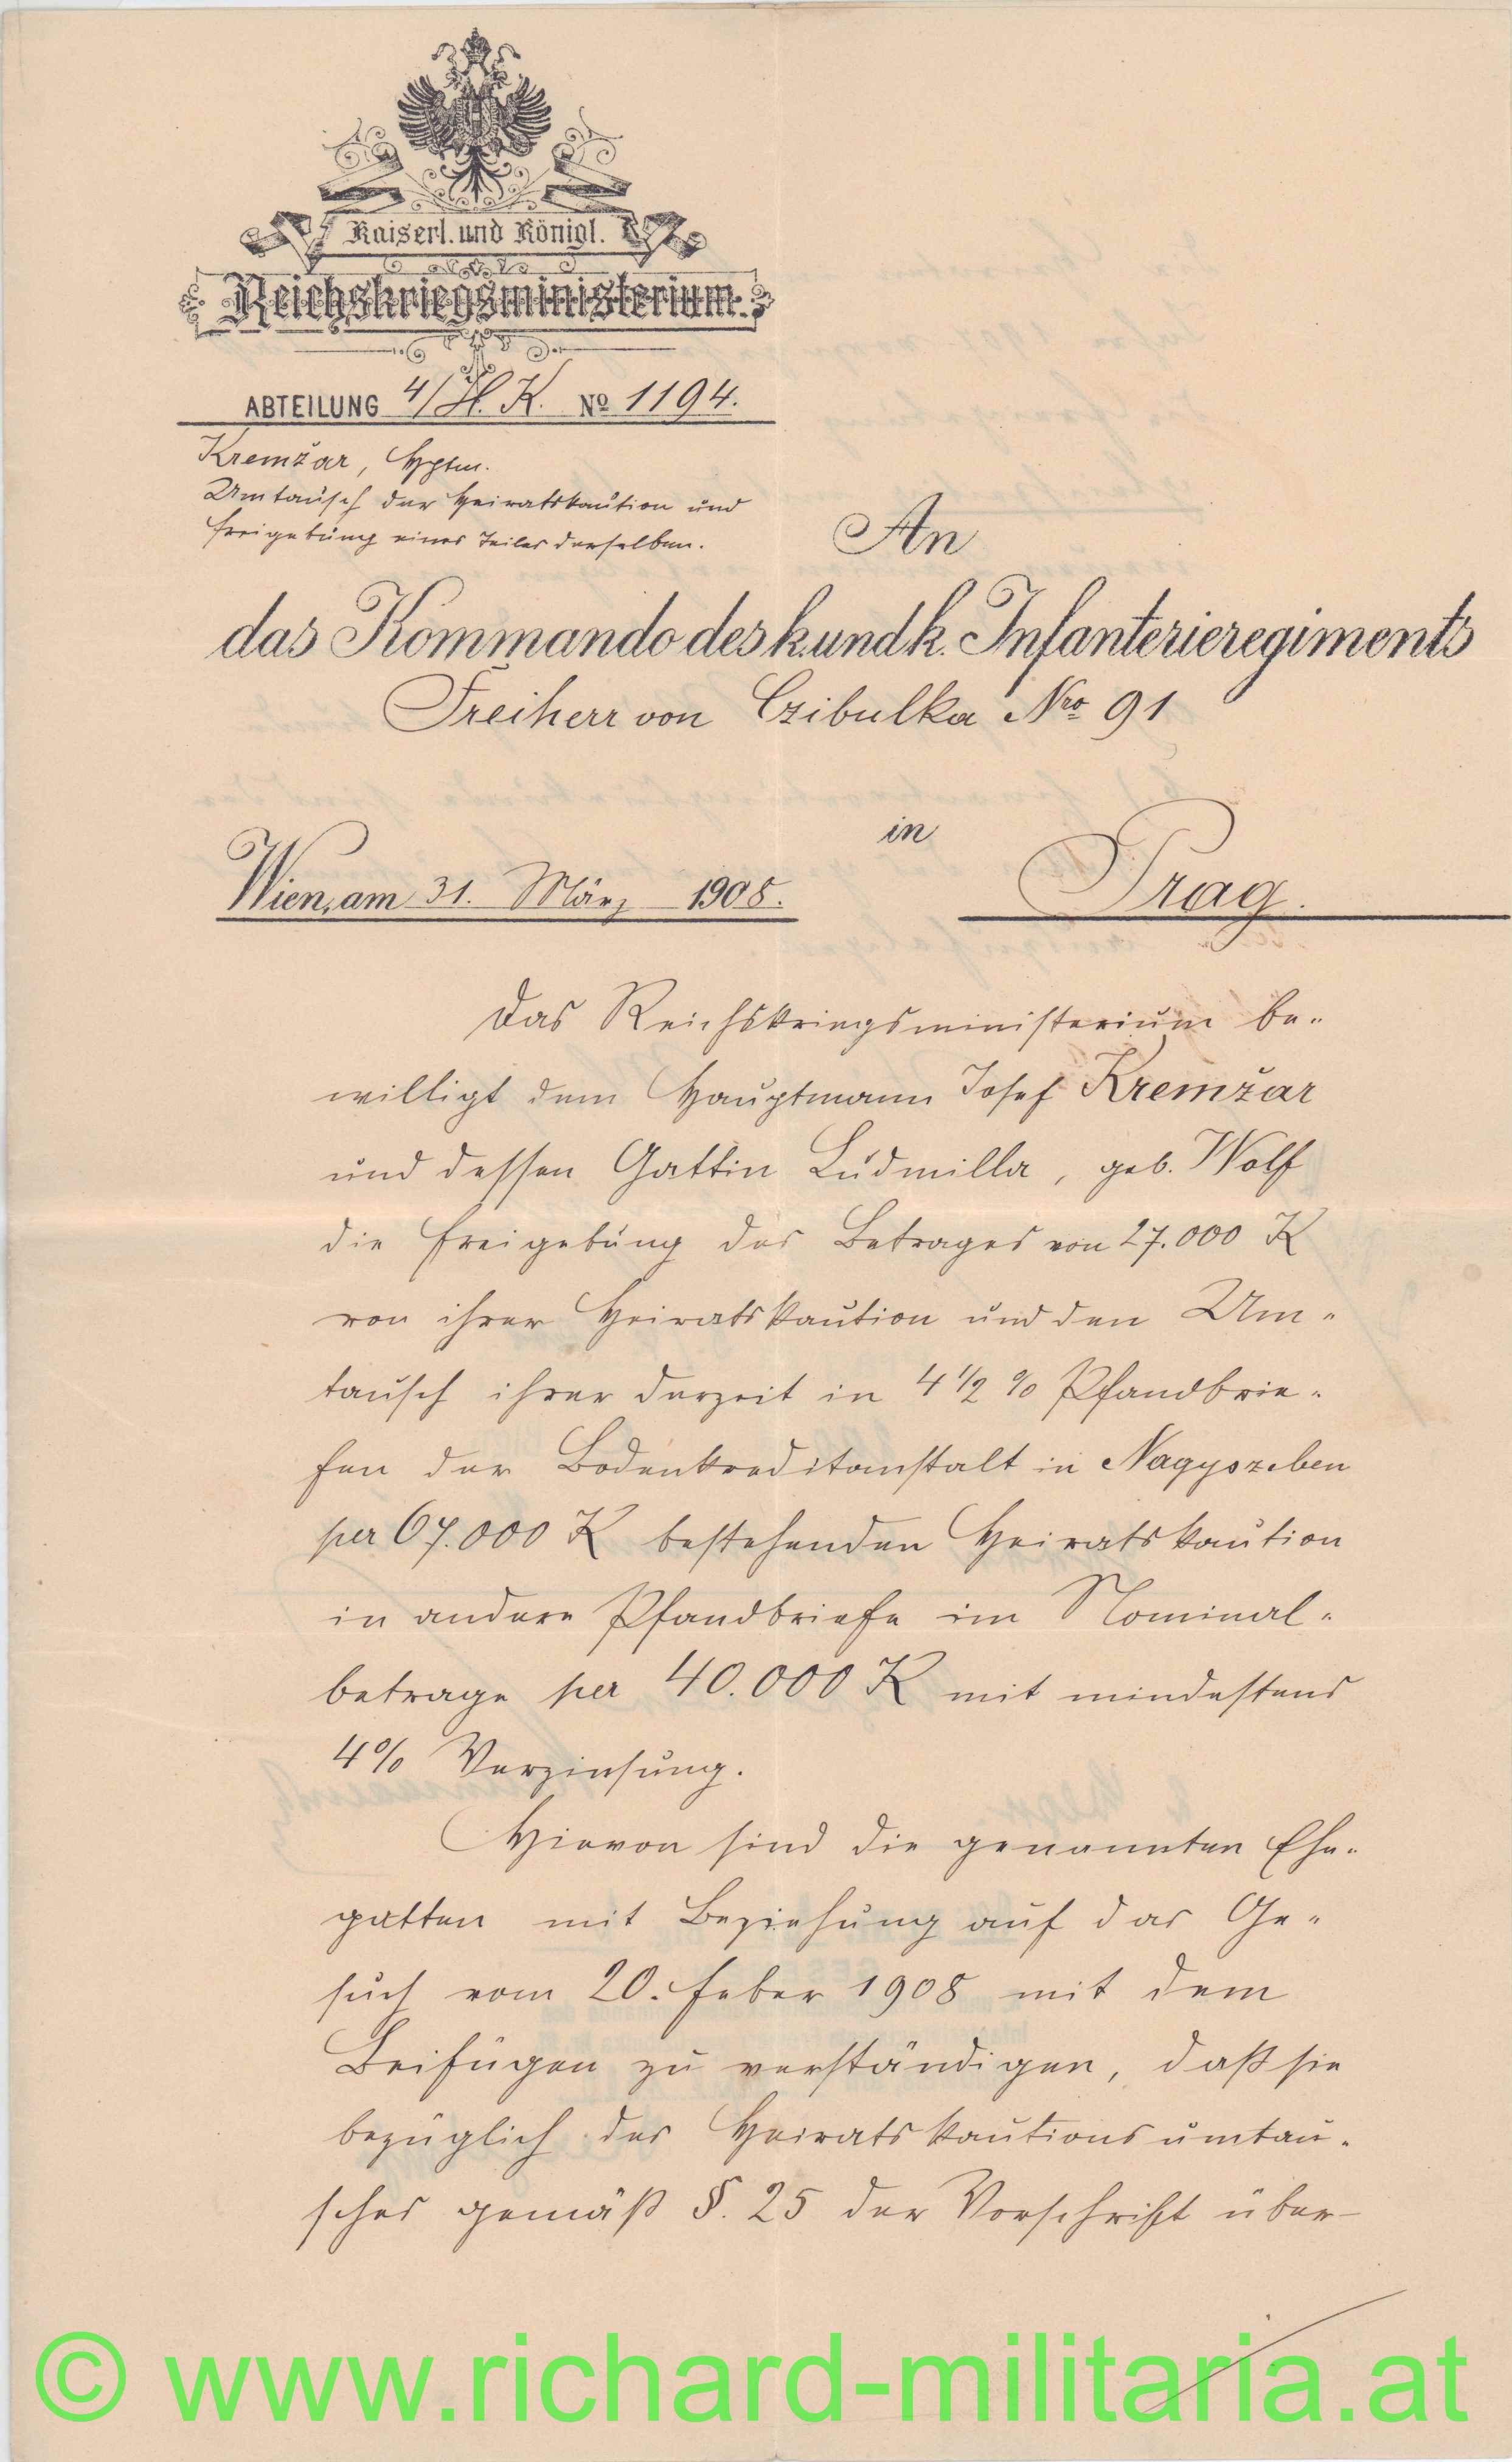 Kaiserl. und Königl.
Reichskriegsministerium.
ABTEILUNG 4/H.K. No 1194.
Kremžar, Hptm.
Umtausch der Heiratskaution und
Freigebung eines Teiles derselben.
An
das Kommando des k. und k. Infanterieregiments
Freiherr von Czibulka Nro 91
in
Wien, am 31. März 1908.
Prag.
Das Reichskriegsministerium be-
willigt dem Hauptmann Josef Kremžar
und dessen Gattin Ludmilla, geb. Wolf
die Freigebung des Betrages von 27.000 K
von ihrer Heiratskaution und den Um-
tausch ihrer derzeit in 4 1/2 % Pfandbrie-
fen der Bodenkreditanstalt in Nagyszeben
per 67.000 K bestehenden Heiratskaution
in andere Pfandbriefe im Nominal-
betrage per 40.000 K mit mindestens
4% Verzinsung.
Hievon sind die genannten Ehe-
gatten mit Beziehung auf das Ge-
such vom 20. Feber 1908 mit dem
Beifügen zu verständigen, daß sie
bezüglich des Heiratskautionsumtau-
sches gemäß §. 25 der Vorschrift über
© www.richard-militaria.at